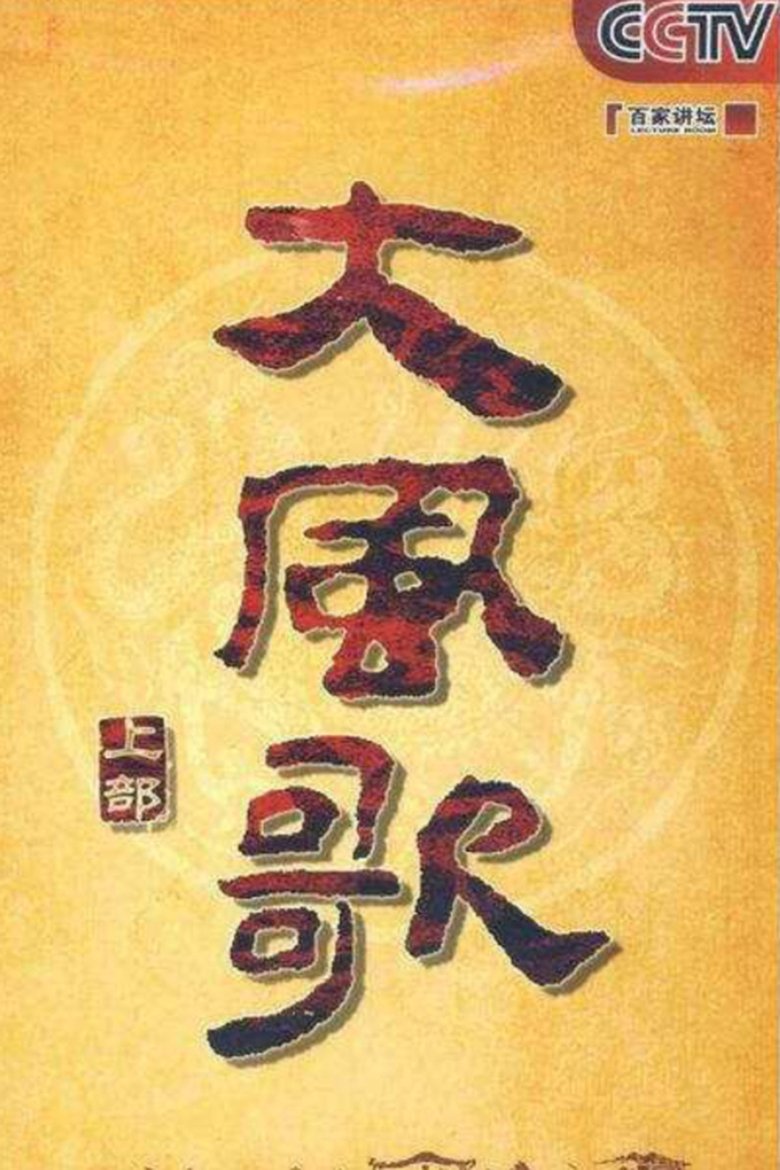 CCTV
百家讲坛
LECTURE ROOM
大
風
歌
上
部